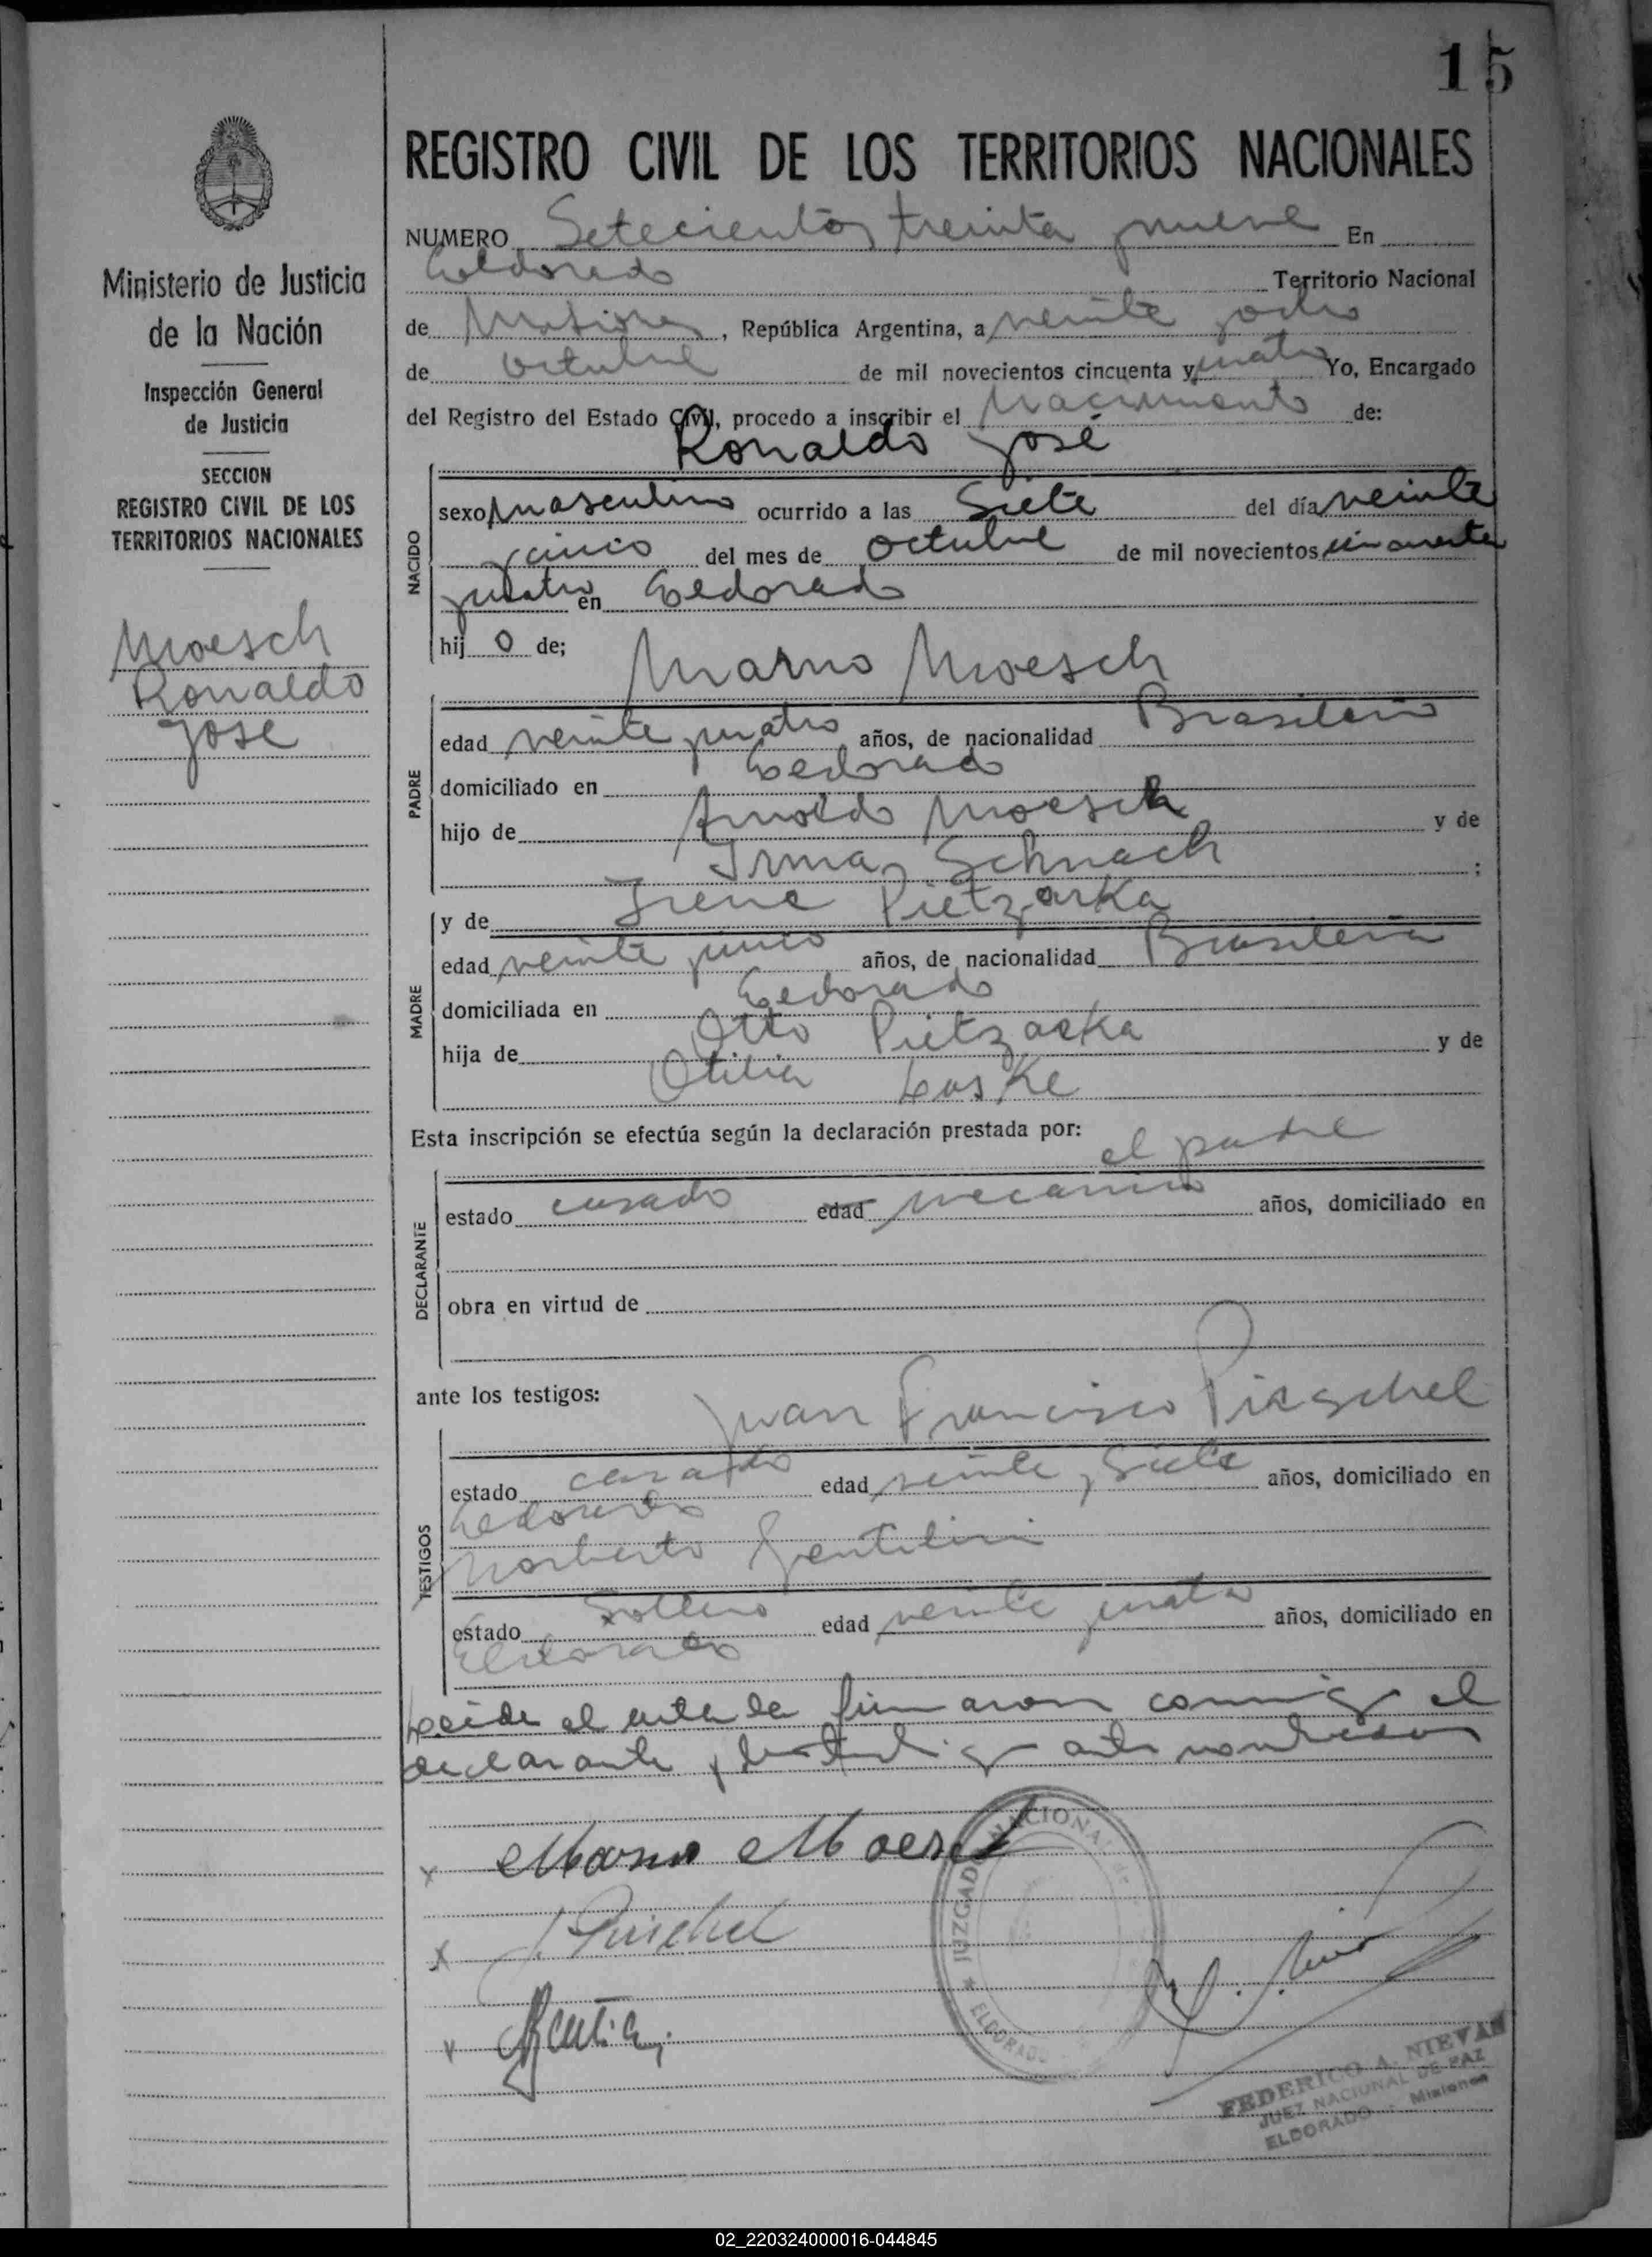 15
REGISTRO CIVIL DE LOS TERRITORIOS NACIONALES
Ministerio de Justicia
de la Nación
Inspección General
de Justicia
SECCION
REGISTRO CIVIL DE LOS
TERRITORIOS NACIONALES
Moesch
Ronaldo
José
NUMERO Setecientos treinta y nueve En
Eldorado Territorio Nacional
de Misiones, República Argentina, a veinte y ocho
de octubre de mil novecientos cincuenta y cuatro Yo, Encargado
del Registro del Estado Civil, procedo a inscribir el Nacimiento de:
Ronaldo José
NACIDO
sexo masculino ocurrido a las Siete del día veinte
y cinco del mes de octubre de mil novecientos cincuenta
y cuatro en Eldorado
hij o de;
Marno Moesch
PADRE
edad veinte y cuatro años, de nacionalidad Brasileño
domiciliado en Eldorado
hijo de Arnoldo Moesch y de
Irma Schnach ;
MADRE
y de Irene Pietzarka
edad veinte y cinco años, de nacionalidad Brasilera
domiciliada en Eldorado
hija de Otto Pietzarka y de
Otilia Laske
Esta inscripción se efectúa según la declaración prestada por:
el padre
DECLARANTE
estado casado edad mecanico años, domiciliado en
obra en virtud de
ante los testigos:
Juan Francisco Pirschel
TESTIGOS
estado casado edad veinte y siete años, domiciliado en
Eldorado
Norberto Gentilini
estado soltero edad veinte y cuatro años, domiciliado en
Eldorado
Leida el acta la firmaron conmigo el
declarante y los testigos antes nombrados
x Marno Moesch
x
x
JUZGADO NACIONAL
★ ELDORADO
FEDERICO A. NIEVAS
JUEZ NACIONAL DE PAZ
ELDORADO - Misiones
02_220324000016-044845